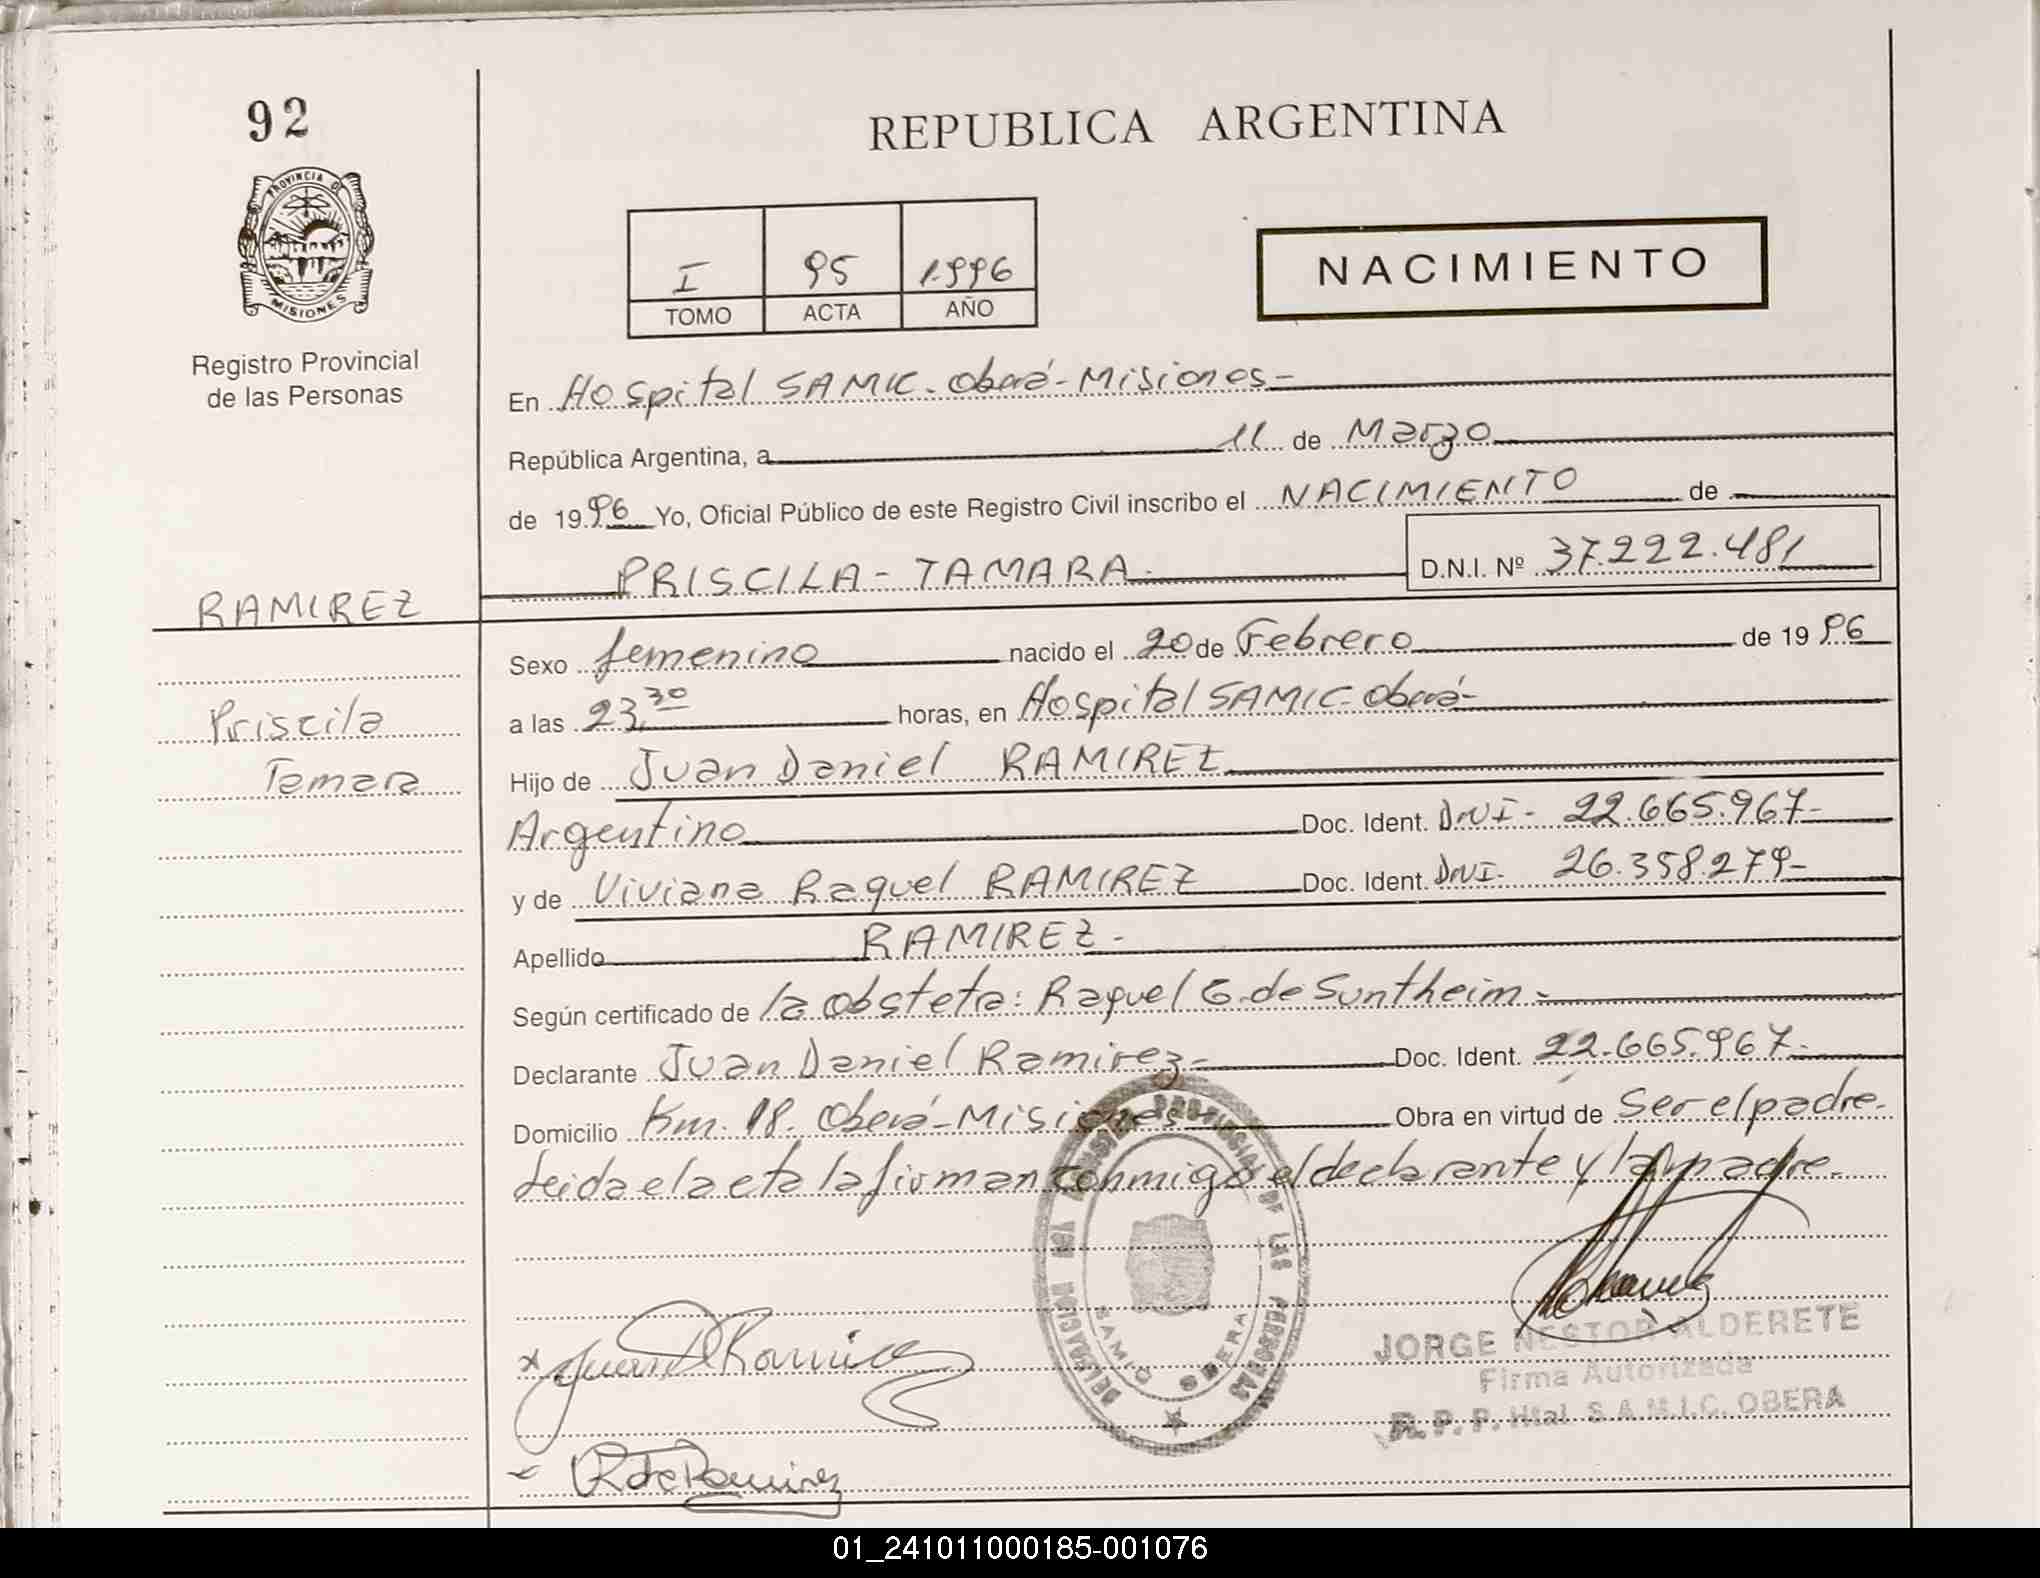 92
PROVINCIA DE
MISIONES
Registro Provincial
de las Personas
RAMIREZ
Priscila
Tamara
REPUBLICA ARGENTINA
I 95 1.996
TOMO ACTA AÑO
NACIMIENTO
En Hospital SAMIC - Oberá - Misiones -
República Argentina, a 11 de Marzo
de 1996 Yo, Oficial Público de este Registro Civil inscribo el NACIMIENTO de
PRISCILA - TAMARA - D.N.I. Nº 37.222.481
Sexo femenino nacido el 20 de Febrero de 1996
a las 23,30 horas, en Hospital SAMIC - Oberá -
Hijo de Juan Daniel RAMIREZ
Argentino Doc. Ident. DNI - 22.665.967 -
y de Viviana Raquel RAMIREZ Doc. Ident. DNI - 26.358.279 -
Apellido RAMIREZ -
Según certificado de la obsteta: Raquel G. de Suntheim -
Declarante Juan Daniel Ramirez - Doc. Ident. 22.665.967 -
Domicilio Km. 18. Oberá - Misiones - Obra en virtud de Ser el padre -
Leida el acta la firman conmigo el declarante y la madre -
PROVINCIAL DE LAS PERSONAS
SAMIC OBERA
x Juan D Ramirez
JORGE NESTOR ALDERETE
Firma Autorizada
R. P. P. Htal S.A.M.I.C. OBERA
R de Ramirez
01_241011000185-001076